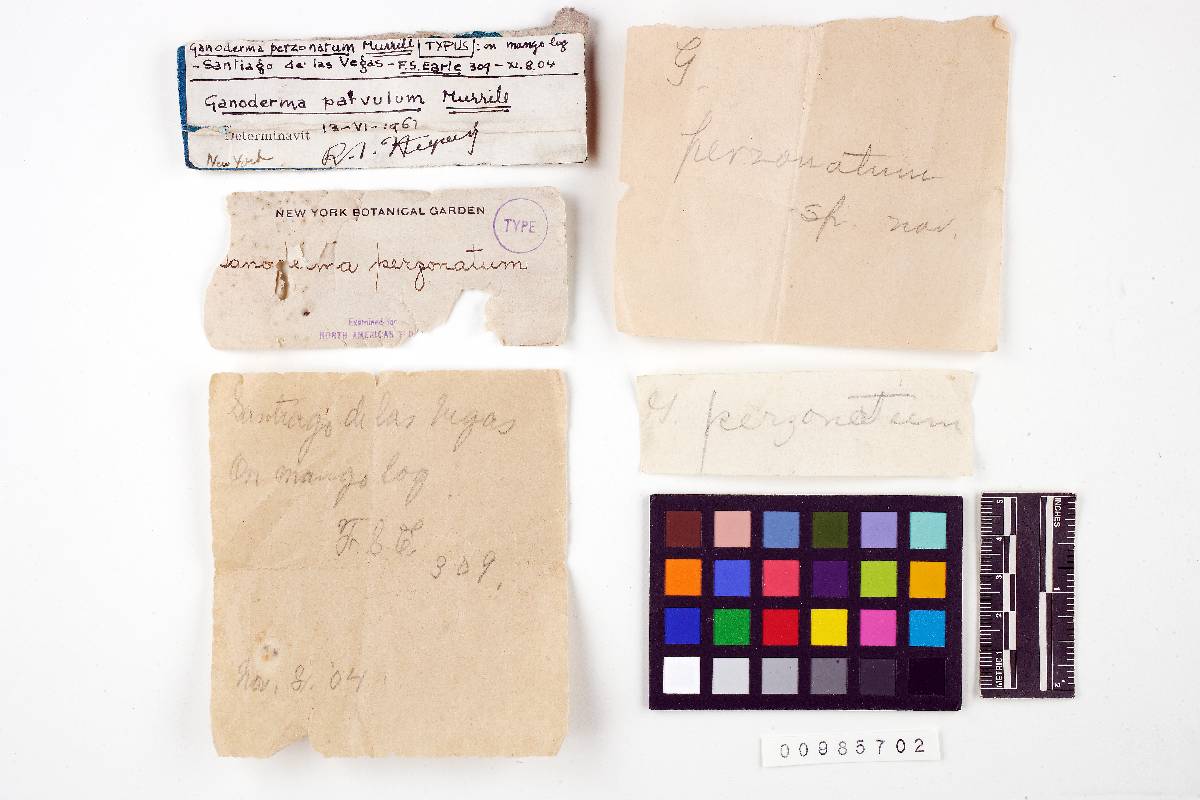 Ganoderma perzonatum Murrill [TYPUS]: on mango log
- Santiago de las Vegas - F.S. Earle 309 - XI.8.04
Ganoderma parvulum Murrill
Determinavit 13-VI-1967
New York
NEW YORK BOTANICAL GARDEN
TYPE
anoderma perzonatum
Examined for
NORTH AMERICAN
G
perzonatum
sp. nov.
Santiago de las Vegas
On mango log
F.S.E.
309.
Nov. 8. '04
G. perzonatum
INCHES
1
2
5
4
3
2
METRIC 1
00985702